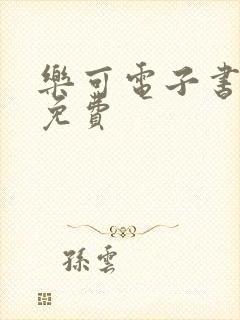 樂可電子書
免費
孫雲